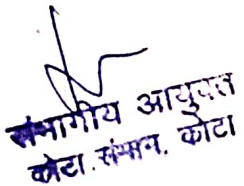 संभागीय आयुक्त
कोटा. संभाग. कोटा